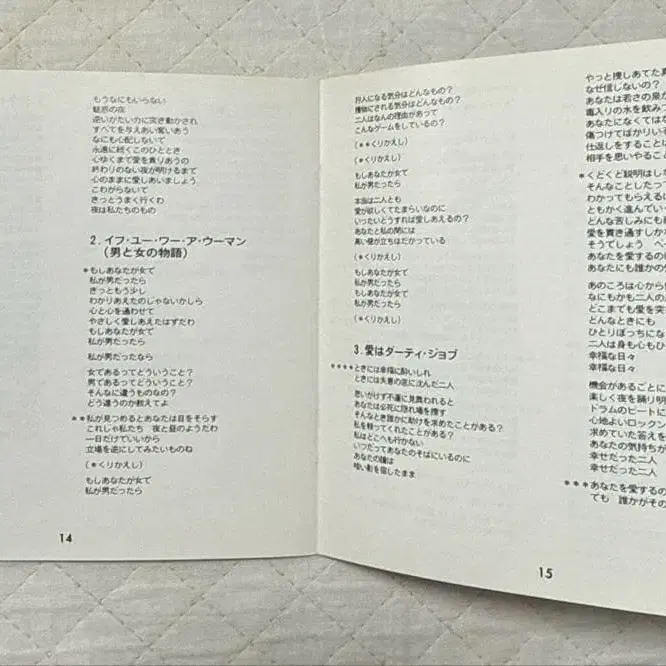 もうなにもいらない
魅惑の夜
逆いがたい力に突き動かされ
すべてを与えあい奪いあう
なにも心配しないで
永遠に続くこのひととき
心ゆくまで愛を貪りあうの
終わりのない夜が明けるまで
心のままに愛しあいましょう
こわがらないで
きっとうまく行くわ
夜は私たちのもの
2.イフ・ユー・ワー・ア・ウーマン
(男と女の物語)
＊もしあなたが女で
私が男だったら
きっともう少し
わかりあえたのじゃないかしら
心と心を通わせて
やさしく愛しあえたはずだわ
もしあなたが女で
私が男だったら
私が男だったなら
女であるってどういうこと?
男であるってどういうこと?
そんなに違うものなの?
どう違うのか教えてよ
＊＊私が見つめるとあなたは目をそらす
これじゃ私たち 夜と昼のようだわ
一日だけでいいから
立場を逆にしてみたいものね
(＊くりかえし)
もしあなたが女で
私が男だったら
14
狩人になる気分はどんなもの?
獲物にされる気分はどんなもの?
二人はなんの理由があって
こんなゲームをしているの?
(＊＊くりかえし)
(＊くりかえし)
もしあなたが女で
私が男だったら
本当は二人とも
愛が欲しくてたまらないなのに
いったいどうすれば愛しあえるの?
あなたと私の間には
高い壁が立ちはだかっている
(＊くりかえし)
もしあなたが女で
私が男だったら
もしあなたが女で
私が男だったら
(＊くりかえし)
3.愛はダーティ・ジョブ
＊＊＊＊ときには幸福に酔いしれ
ときには失意の底に沈んだ二人
思いがけず不運に見舞われると
あなたは必死に隠れ場を捜す
そんなとき誰かに助けを求めたことがある?
私を頼ってくれたことがある?
私はどこへも行かない
いつだってあなたのそばにいるのに
あなたの瞳は
暗い影を宿したまま
やっと捜しあてた真
なぜ信じないの?
あなたは若さの泉か
毒入りの水を飲みつ
あなたになくてはな
傷つけてばかりいる
仕返しをすることは
相手を思いやること
＊くどくど説明はしな
そんなことしたって
わかってもらえる
ともかく進んでいく
どんな苦しみにも
愛を貫き通すしかな
そうでしょう べ
あなたを愛するの
あなたにも誰かの
あのころは心から
なにもかも二人の
どこまでも愛を突
どんなときにも
ひとりぼっちにな
二人は身も心もひ
幸福な日々
幸福な日々
機会があるごとに
楽しく夜を踊り明
ドラムのビートに
心地よいロックン
求めていた答えを
あなたの気持ちが
幸せだった二人
幸せだった二人
＊＊＊あなたを愛するの
ても 誰かがその
15